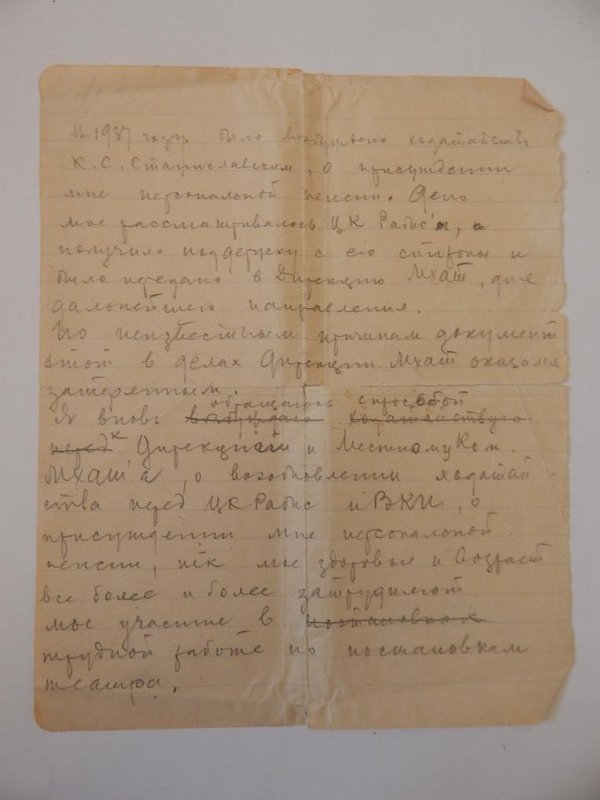 В 1937 году было возбуждено ходатайство
К.С. Станиславским, о присуждении
мне персональной пенсии. Дело
мое рассматривалось ЦК Рабис'м, и
получило поддержку с его стороны и
было передано в Дирекцию МХАТ, для
дальнейшего направления.
По неизвестным причинам документ
этот в делах Дирекции МХАТ оказался
затерянным.
обращаюсь с просьбой
Я вновь возбуждаю ходатайствую
перед к Дирекцией и Местному Ком.
МХАТ'а, о возобновлении ходатай-
ства перед ЦК Рабис и ВКИ, о
присуждении мне персональной
пенсии, т.к. мое здоровье и возраст
все более и более затрудняют
мое участие в постановках
трудной работе по постановкам
театра.